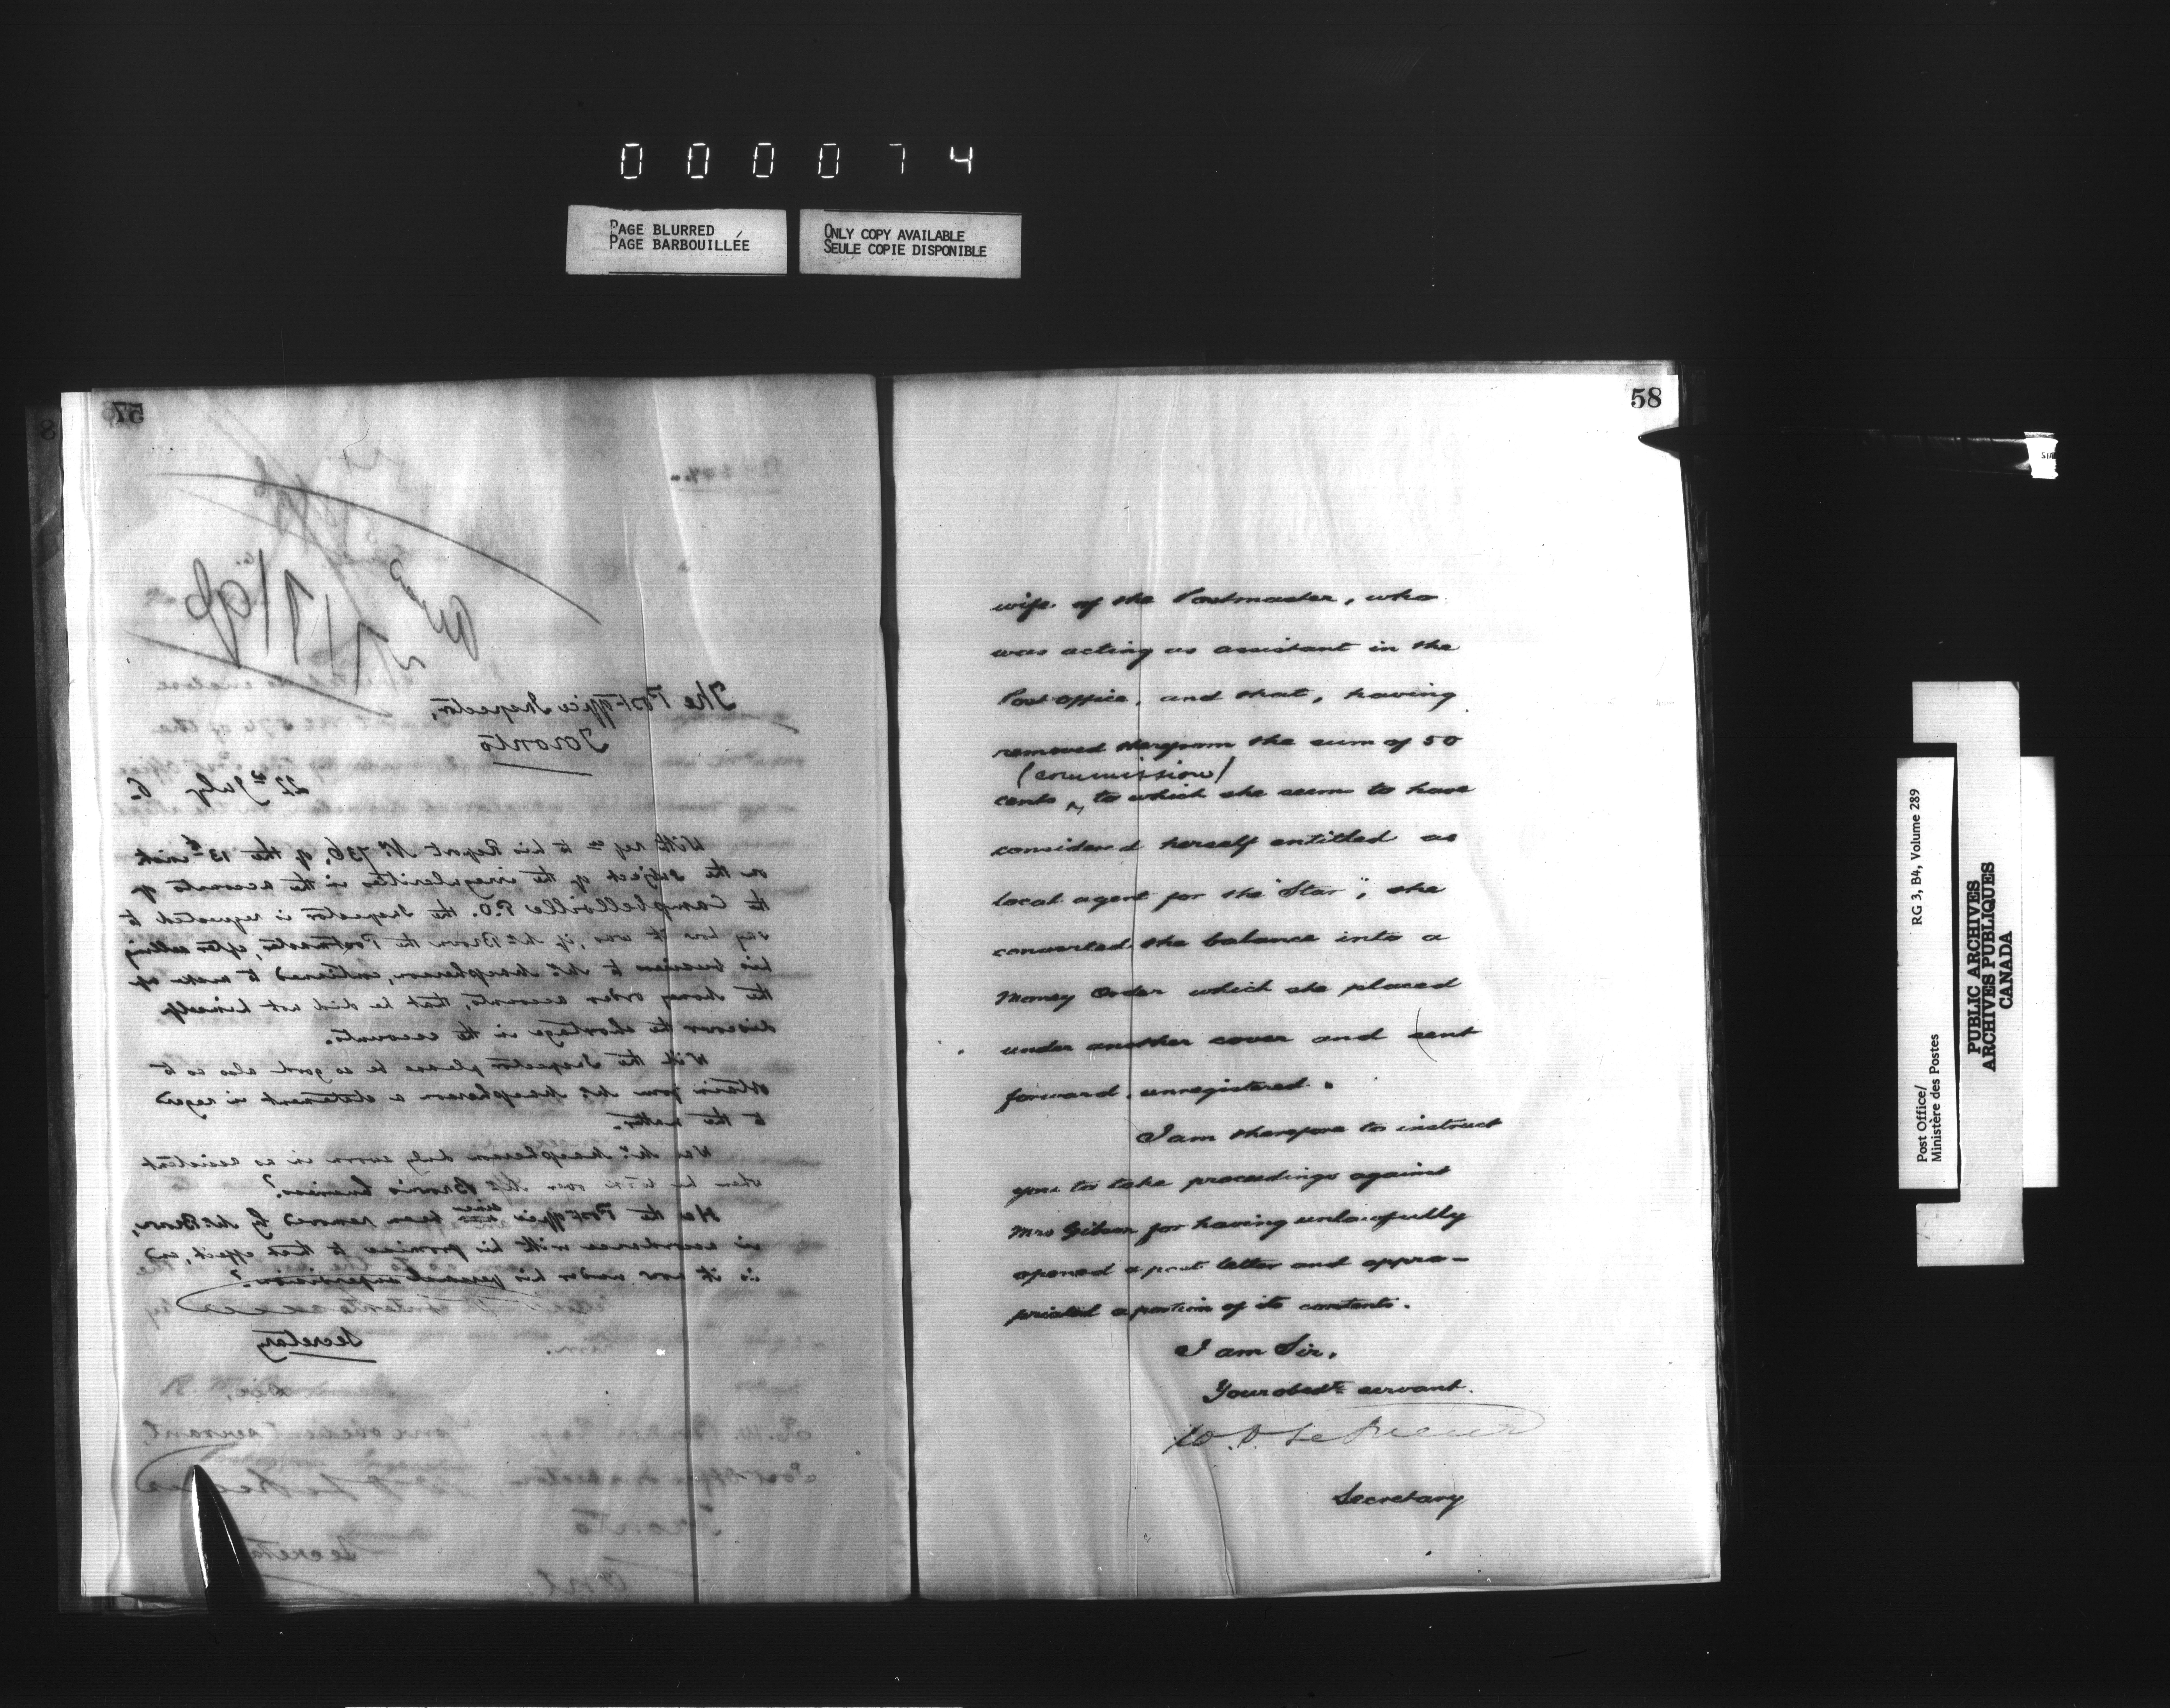 000074
PAGE BLURRED
PAGE BARBOUILLÉE
ONLY COPY AVAILABLE
SEULE COPIE DISPONIBLE
57
The Post-office Inspector,
Toronto
22nd July 6
With refce to his Report No 736, of the 13th inst
on the subject of the irregularities in the accounts of
the Campbellville P.O. the Inspector is requested to
say how it was, if Mr Brown the Postmaster, after selling
his business to Mr Macpherson, continued to make up
the money order accounts, that he did not himself
discover the shortage in the accounts.
Will the Inspector please be so good also as to
obtain from Mr Macpherson a statement in regard
to the matter.
Was Mr Macpherson duly sworn in as assistant
when he took over Mr Brown's business?
Has the Post-office since been removed by Mr Brown,
in accordance with his promise to that effect, and
is it now under his personal supervision?
Secretary
58
wife of the Postmaster, who
was acting as assistant in the
Post office, and that, having
removed therefrom the sum of 50
(commission)
cents ^ to which she seems to have
considered herself entitled as
local agent for the "Star", she
converted the balance into a
Money Order which she placed
under another cover and sent
forward, unregistered.
I am therefore to instruct
you to take proceedings against
Mrs Gibson for having unlawfully
opened a post letter and appro-
priated a portion of its contents.
I am Sir,
Your obedt servant.
W. D. LeSueur
Secretary
Post Office/
Ministère des Postes
RG 3, B4, Volume 289
PUBLIC ARCHIVES
ARCHIVES PUBLIQUES
CANADA